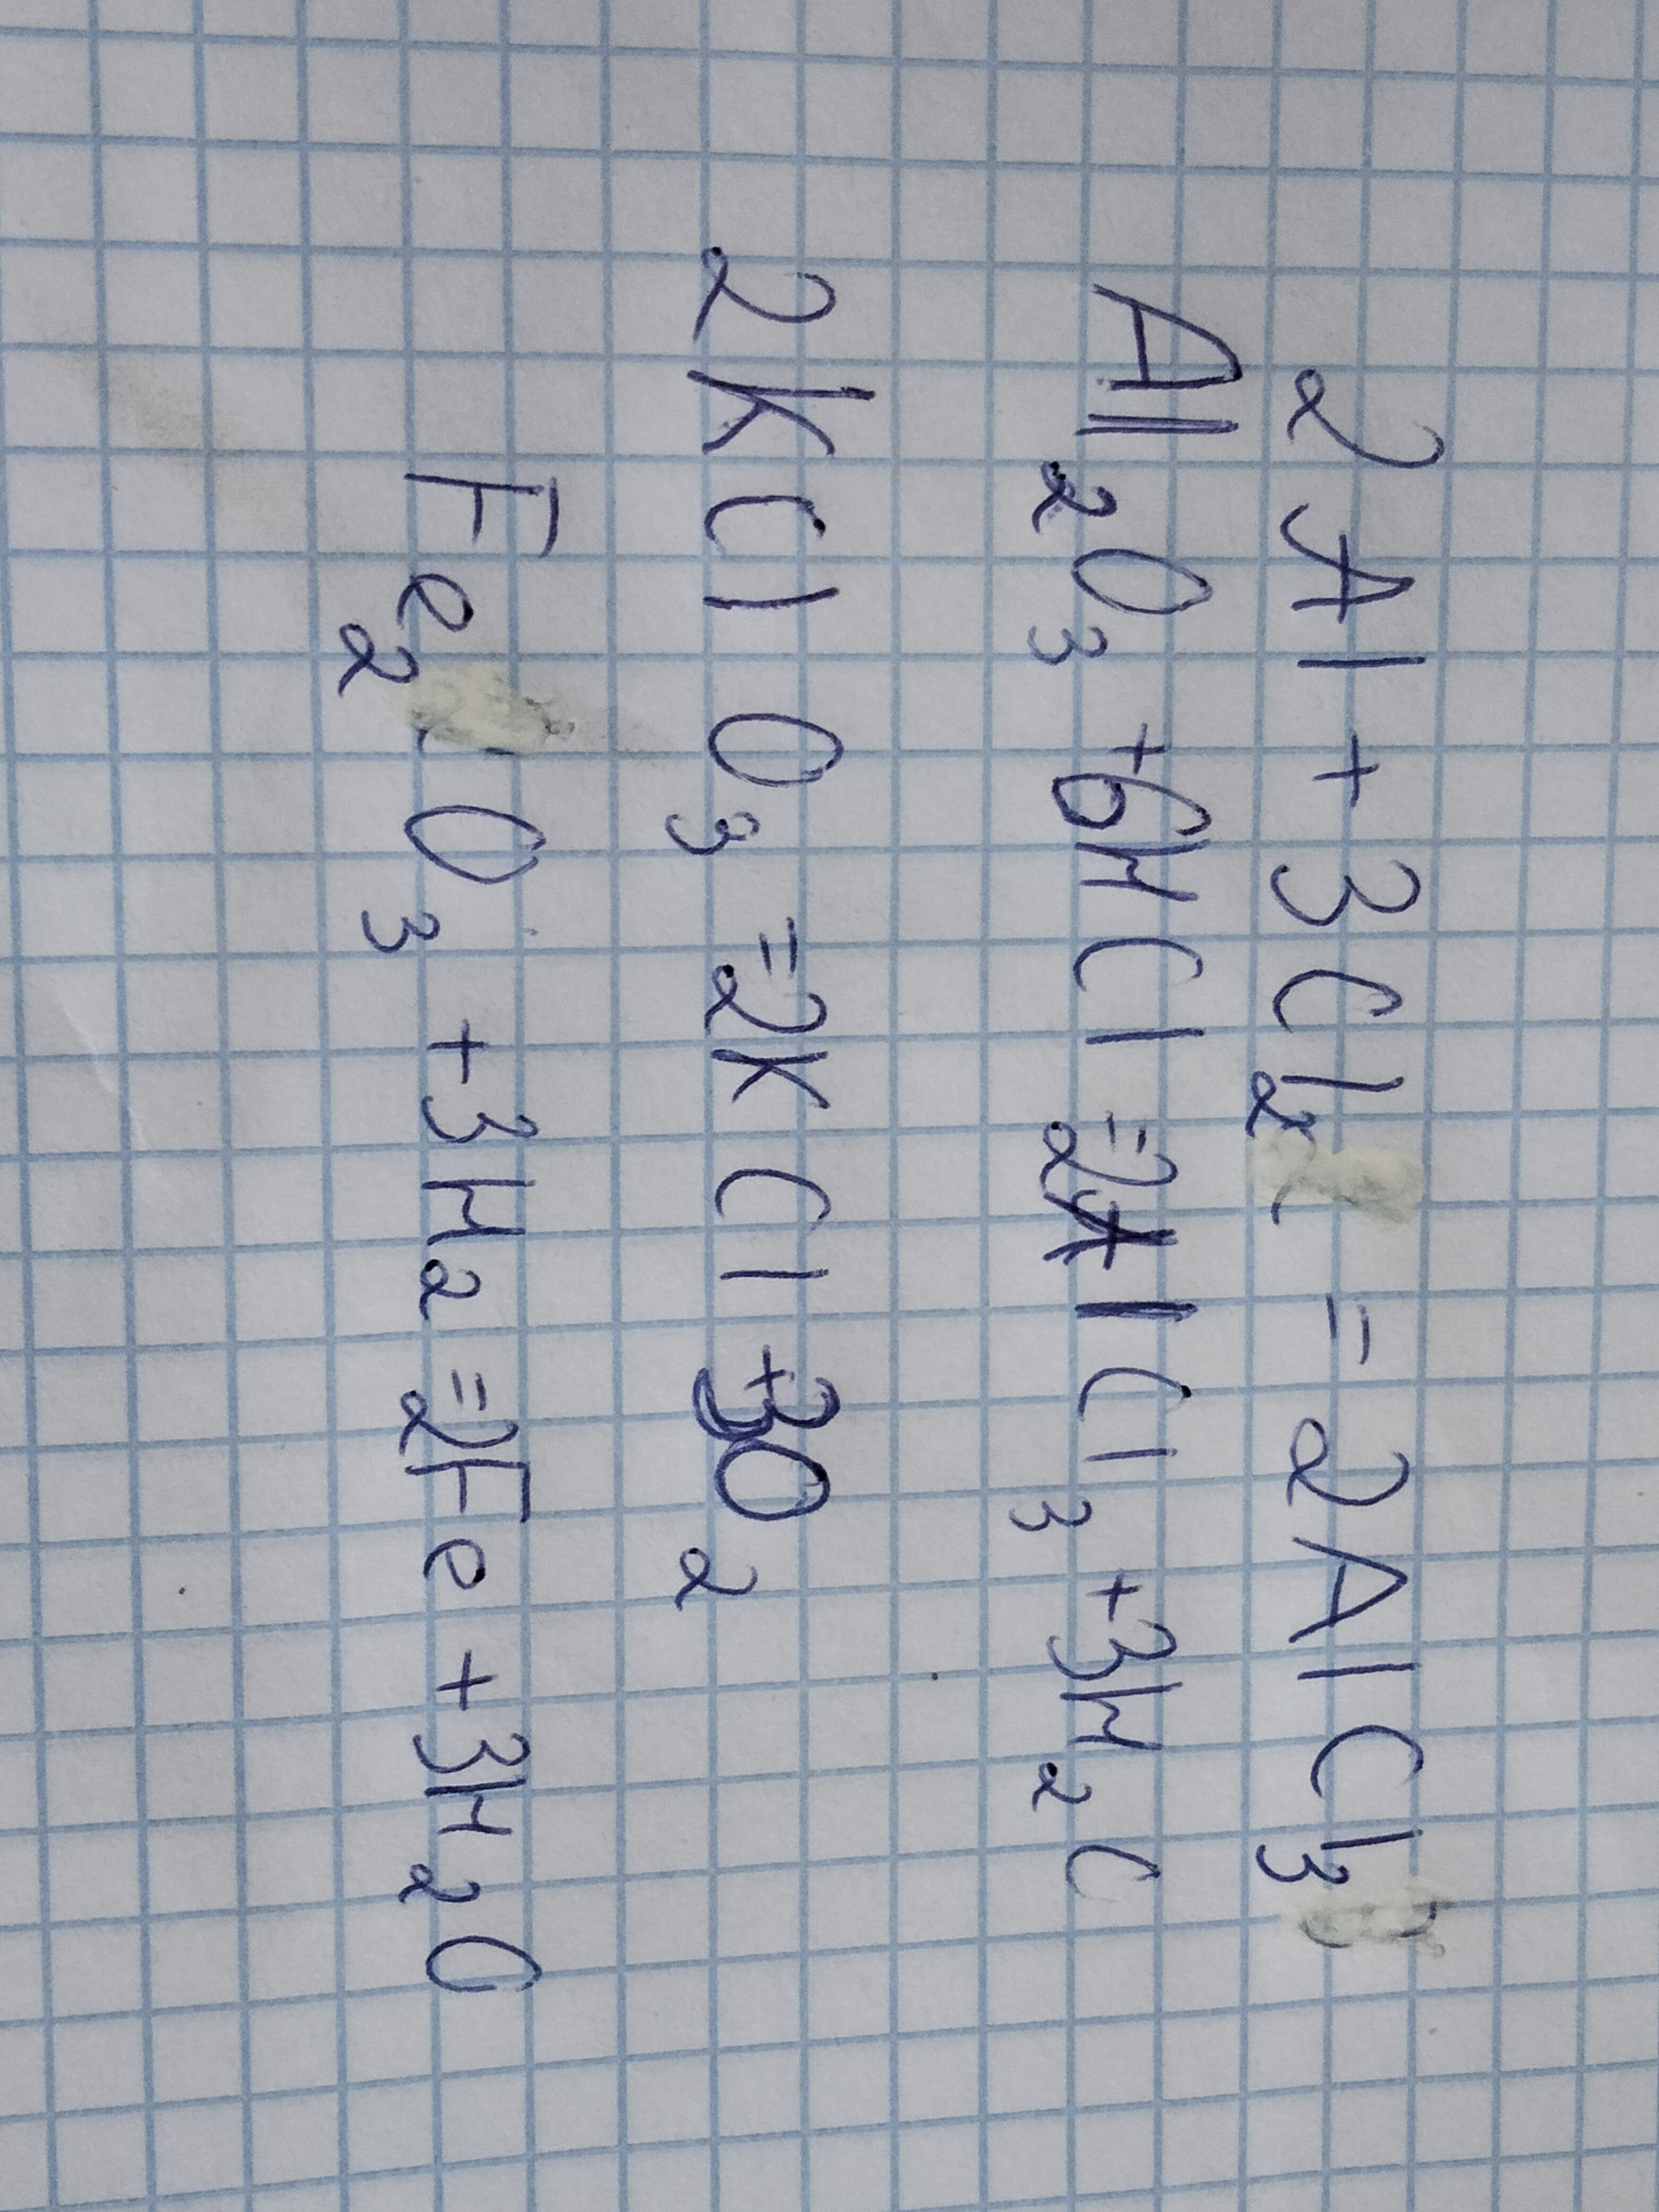 2Al + 3Cl₂ = 2AlCl₃
Al₂O₃ + 6HCl = 2AlCl₃ + 3H₂O
2KClO₃ = 2KCl + 3O₂
Fe₂O₃ + 3H₂ = 2Fe + 3H₂O